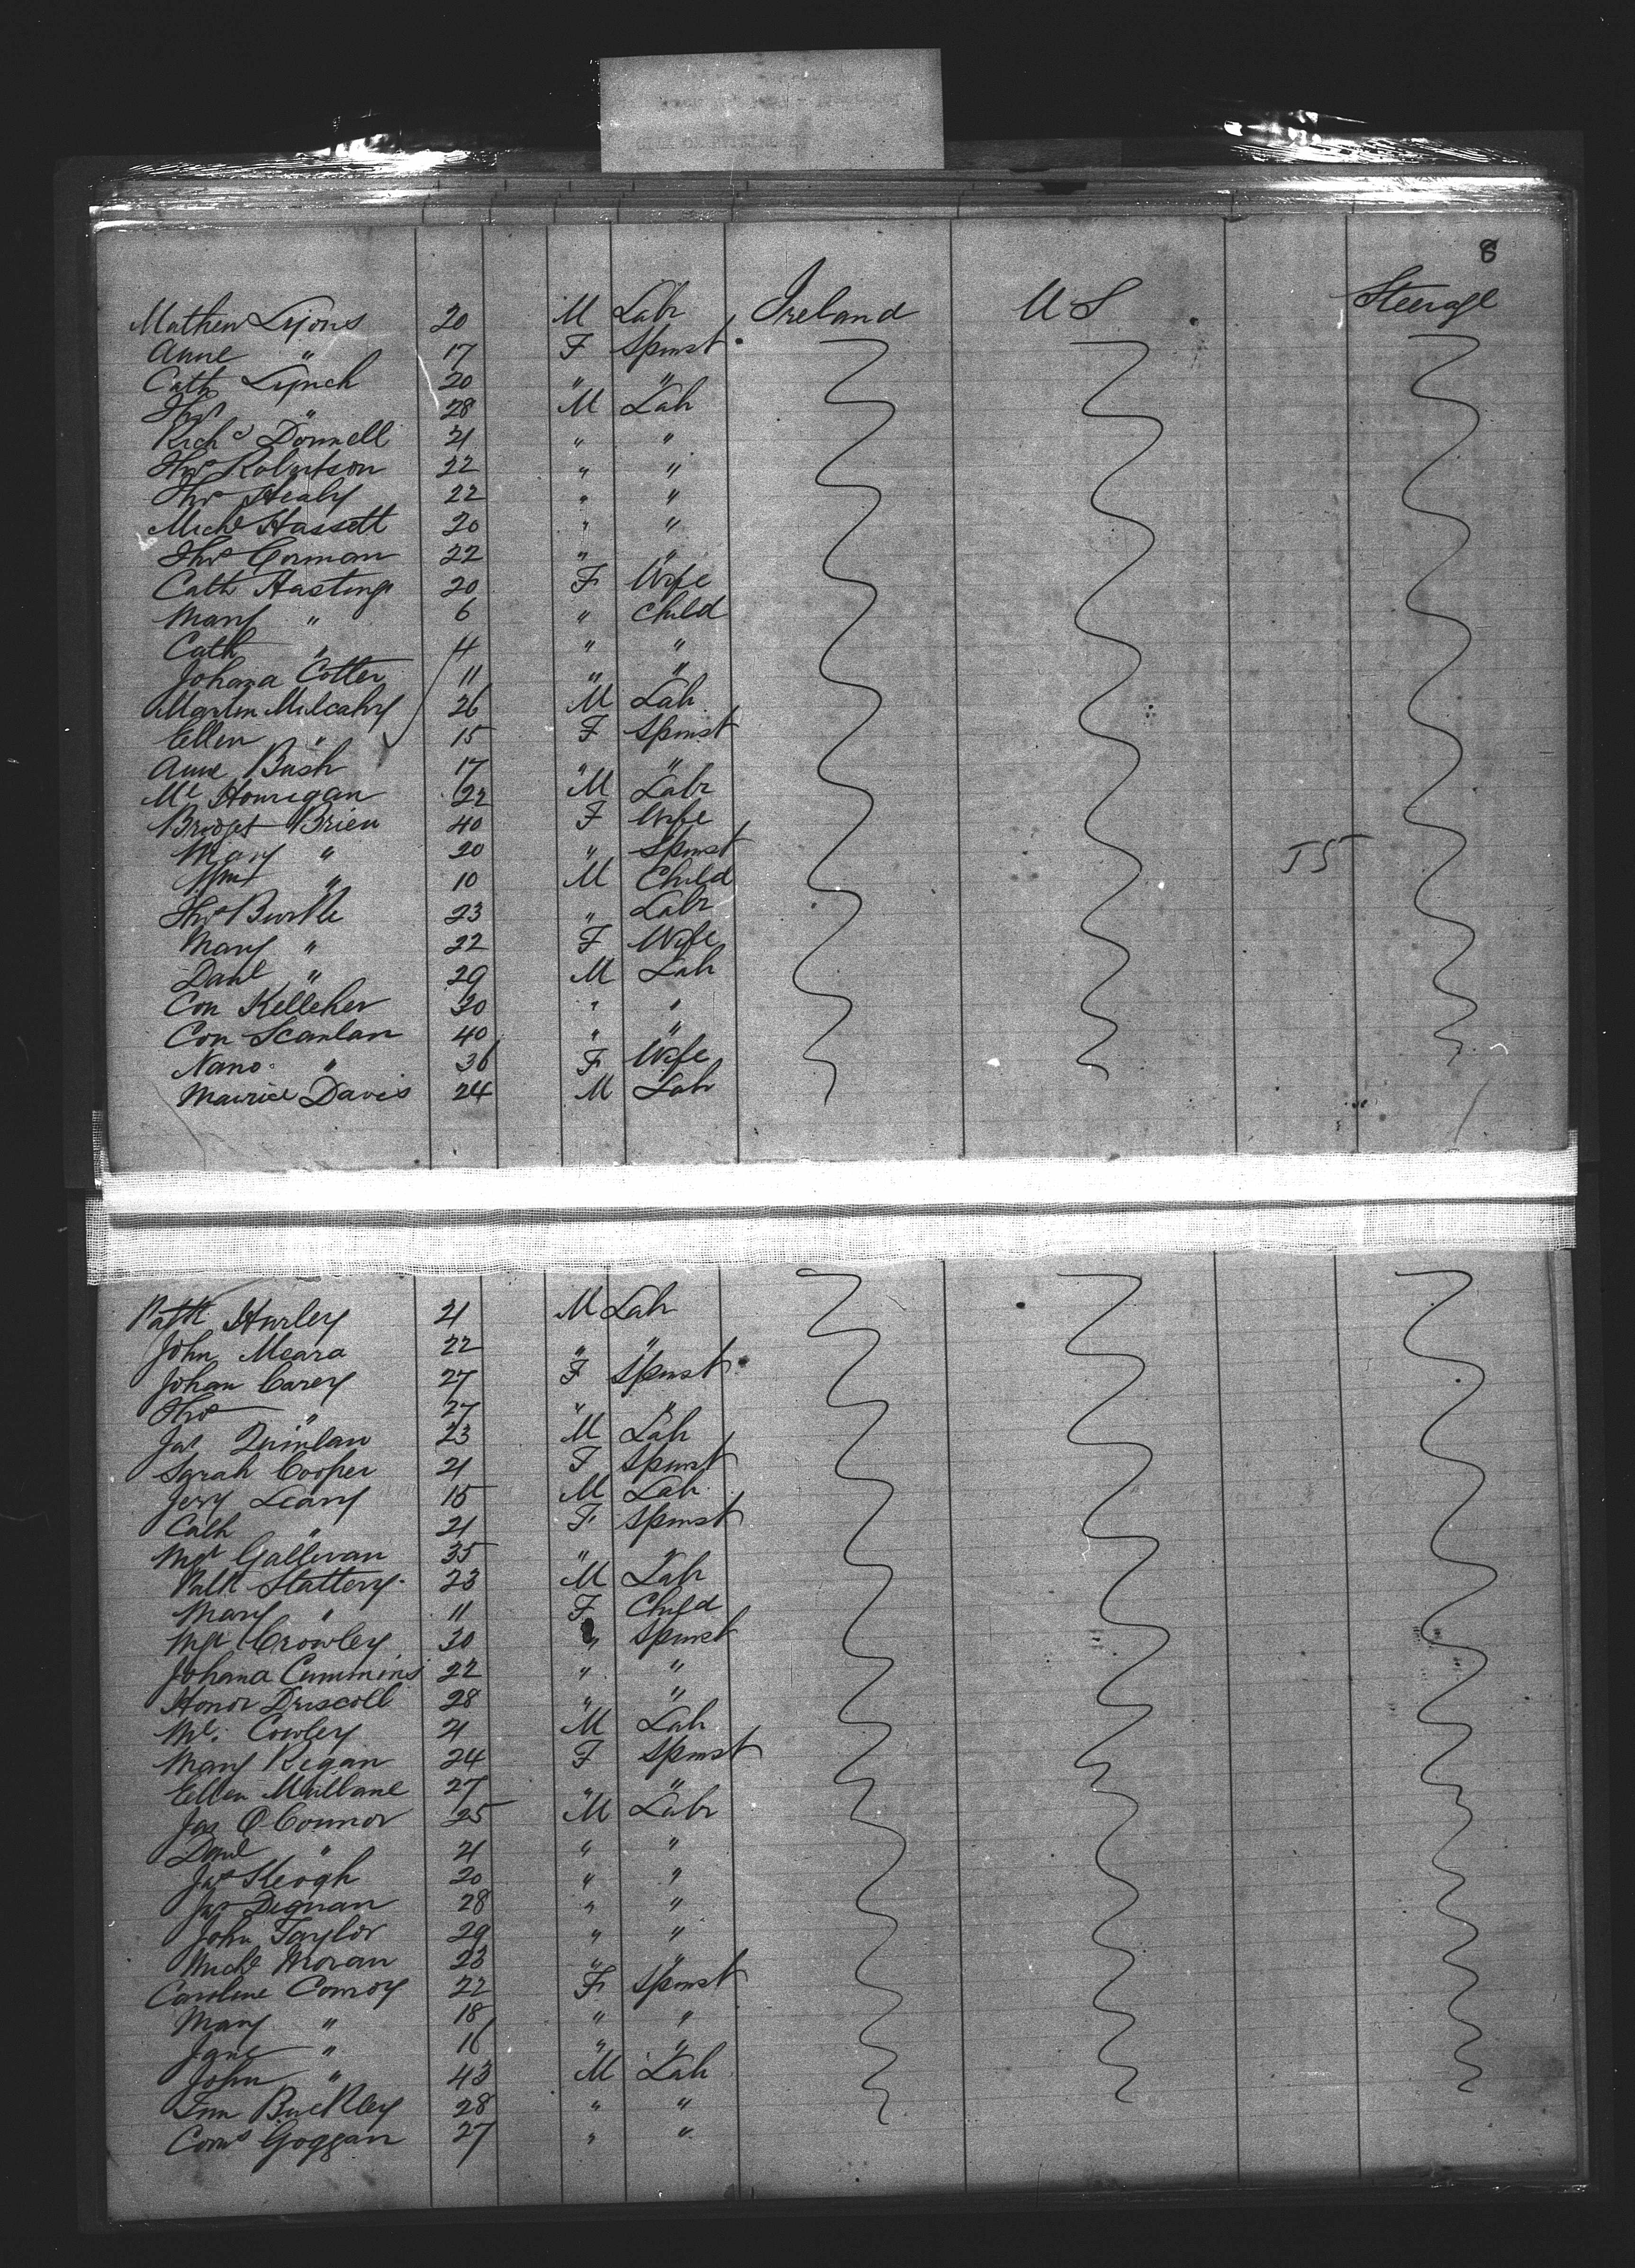 8
Mathew Lyons 20 M Labr Ireland U S Steerage
Anne " 17 F Spinst
Cath Lynch 20 " "
Thos " 28 M Lab
Richd Donnell 21 " "
Thos Robertson 22 " "
Thos Healy 22 " "
Michl Hassett 20 " "
Thos Gorman 22 " "
Cath Hastings 20 F Wife
Mary " 6 " Child
Cath " 4 " "
Johana Cotter 11 " "
Martin Mulcahy 26 M Lab
Ellen " 15 F Spinst
Anne Bush 17 " "
Ml Hourigan 22 M Labr
Bridget Brien 40 F Wife
Mary " 20 " Spinst JST
Wm " 10 M Child
Thos Burke 23 " Labr
Mary " 22 F Wife
Danl " 29 M Lab
Con Kelleher 30 " "
Con Scanlan 40 " "
Nano " 36 F Wife
Maurice Davis 24 M Lab
Patk Hurley 21 M Lab
John Meara 22 " "
Johan Carey 27 F Spinst
Thos " 27 " "
Jas Quinlan 23 M Lab
Sarah Cooper 21 F Spinst
Jery Leary 15 M Lab
Cath " 21 F Spinst
Mgt Gallivan 35 " "
Patk Slattery 23 M Lab
Mary " 11 F Child
Mgt Crowley 30 " Spinst
Johana Cummins 22 " "
Honor Driscoll 28 " "
Ml. Cowley 21 M Lab
Mary Regan 24 F Spinst
Ellen Mullane 27 " "
Jas O'Connor 25 M Labr
Danl " 21 " "
Jas Keogh 20 " "
Jas Dignan 28 " "
John Taylor 29 " "
Michl Moran 23 " "
Caroline Conroy 22 F Spinst
Mary " 18 " "
Jane " 16 " "
John " 43 M Lab
Tim Buckley 28 " "
Corns Goggan 27 " "